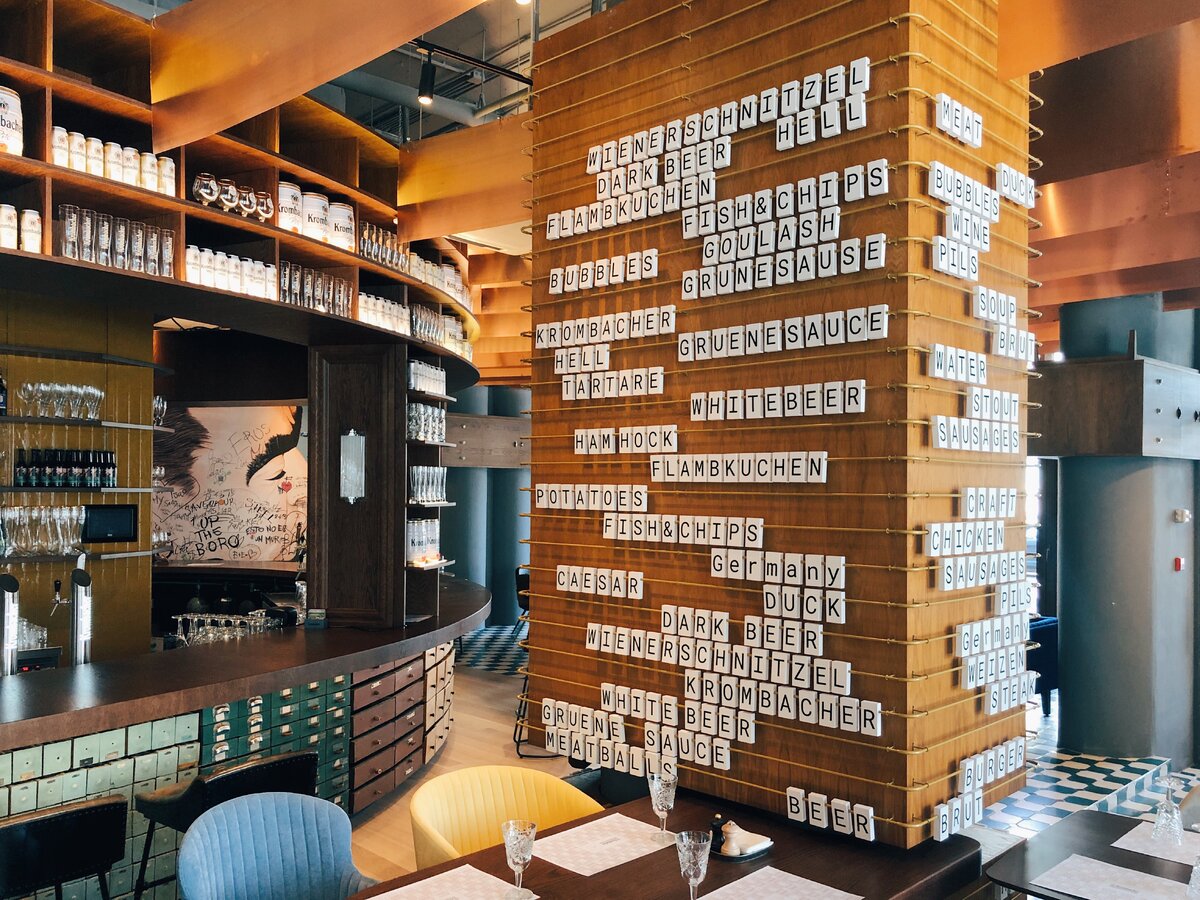 WIENERSCHNITZEL
HELL
DARK BEER
FLAMBKUCHEN
FISH&CHIPS
GOULASH
BUBBLES
GRUNESAUSE
KROMBACHER
GRUENESAUCE
HELL
TARTARE
WHITEBEER
HAM HOCK
FLAMBKUCHEN
POTATOES
FISH&CHIPS
Germany
CAESAR
DUCK
DARK BEER
WIENERSCHNITZEL
KROMBACHER
WHITE BEER
GRUENE SAUCE
MEATBALLS
BEER
MEAT
DUCK
BUBBLES
WINE
PILS
SOUP
BRUT
WATER
STOUT
SAUSAGES
CRAFT
CHICKEN
SAUSAGES
PILS
Germany
WEIZEN
STEAK
BURGER
BRUT
Eros
UP
THE
BORO
ESTO NO ES
UN MURO